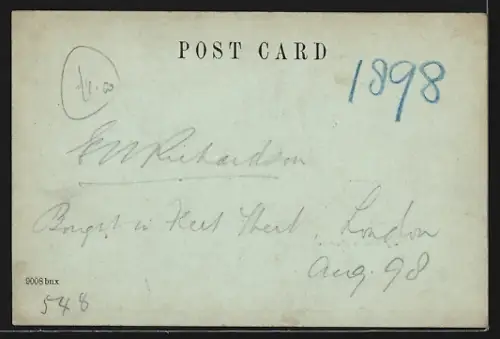 POST CARD
1898
Richardson
Bought in Fleet Street, London
Aug. 98
9008 bnx
548